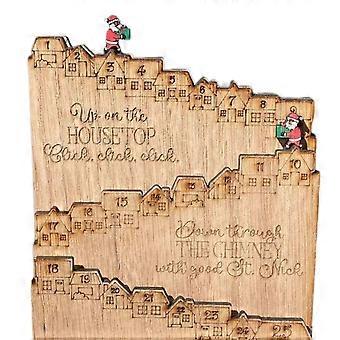 1 2 3 4 5 6 7 8
Up on the
HOUSETOP
Click, click, click,
17 16 15 14 12 11 10
Down through
THE CHIMNEY
with good St. Nick
18 19 20 21 22 23 24 25